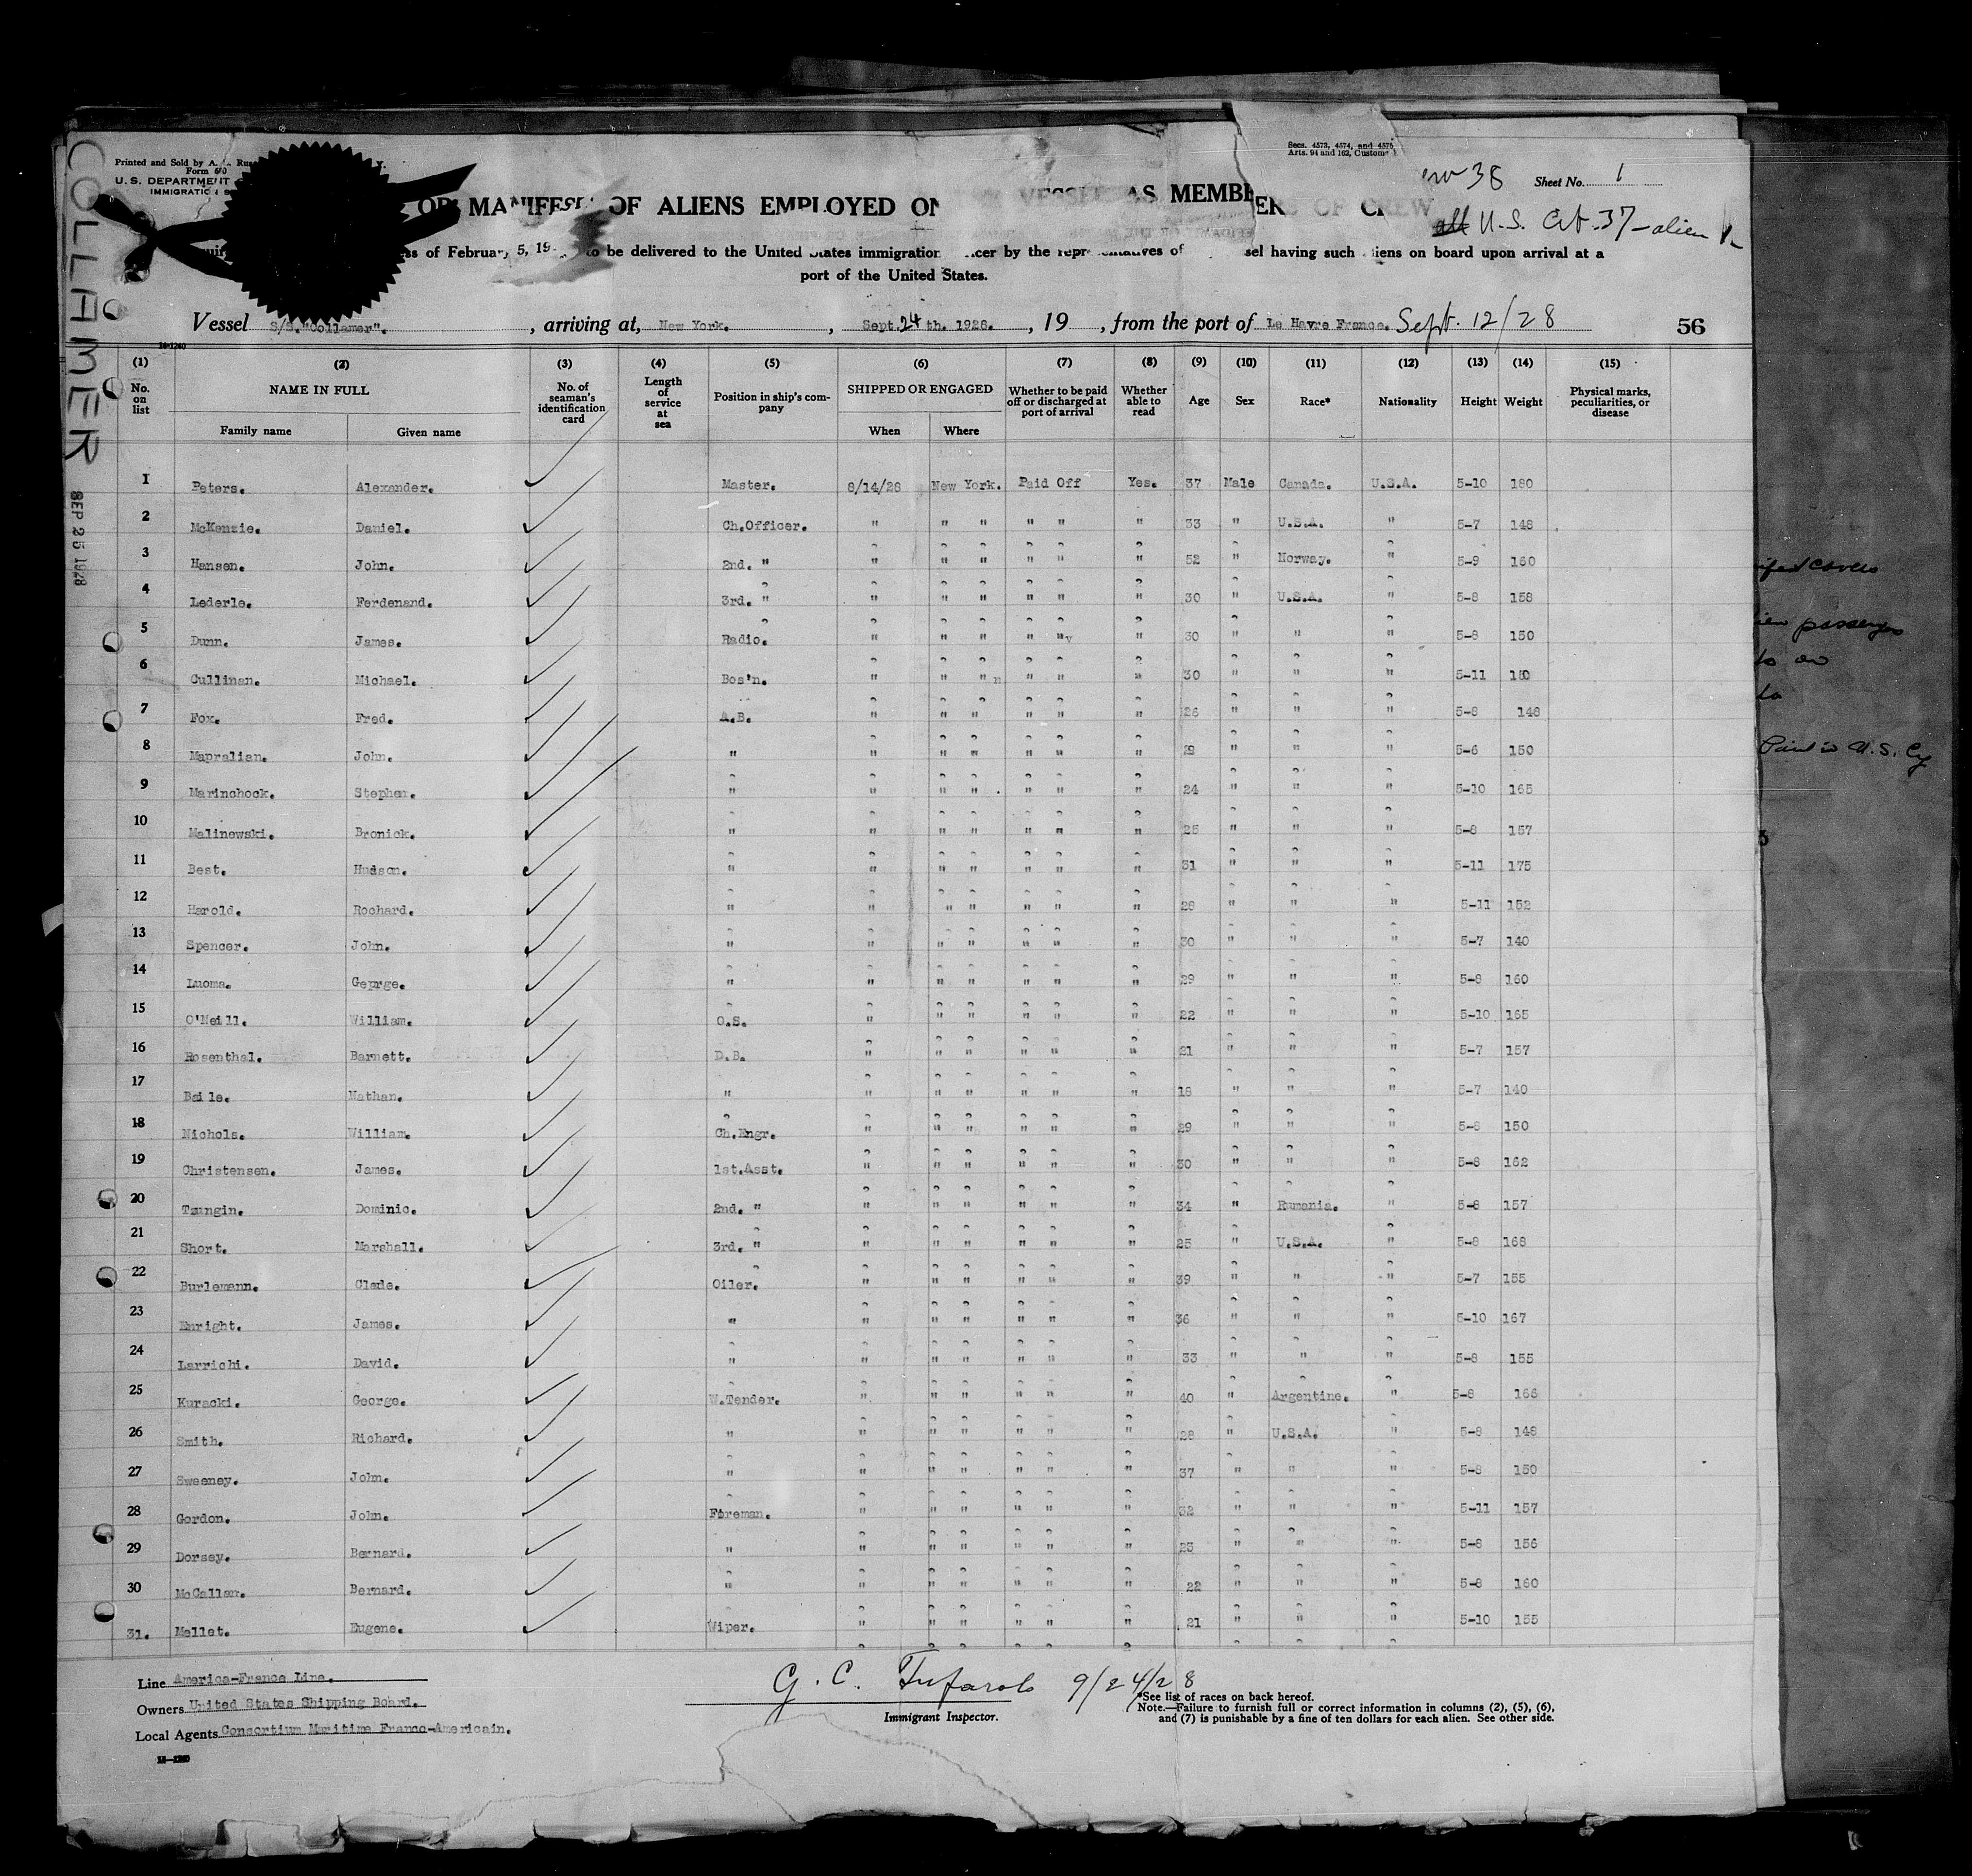 COLLAMER
SEP 25 1928
Printed and Sold by A.
Form 6
U.S. DEPARTMENT
Secs. 4573, 4574, and 4575
Arts. 94 and 162, Custom
38 Sheet No. 1
OR MANIFEST OF ALIENS EMPLOYED ON VESSEL AS MEMBERS OF CREW
all U.S. Cit. 37-alien 1
ss of February 5, 19 to be delivered to the United States immigration officer by the representatives of sel having such aliens on board upon arrival at a
port of the United States.
Vessel S/S."Collamer". , arriving at, New York. , Sept. 24 th. 1928. , 19 , from the port of Le Havre France. Sept. 12/28 56
(1) (2) (3) (4) (5) (6) (7) (8) (9) (10) (11) (12) (13) (14) (15)
No. on list NAME IN FULL No. of seaman's identification card Length of service at sea Position in ship's company SHIPPED OR ENGAGED Whether to be paid off or discharged at port of arrival Whether able to read Age Sex Race* Nationality Height Weight Physical marks, peculiarities, or disease
Family name Given name When Where
1 Peters. Alexander. Master. 8/14/28 New York. Paid Off Yes. 37 Male Canada. U.S.A. 5-10 180
2 McKenzie. Daniel. Ch.Officer. " " " " " " 33 " U.S.A. " 5-7 148
3 Hansen. John. 2nd. " " " " " " " 52 " Norway. " 5-9 160
4 Lederle. Ferdenand. 3rd. " " " " " " " 30 " U.S.A. " 5-8 158
5 Dunn. James. Radio. " " " " " " 30 " " " 5-8 150
6 Cullinan. Michael. Bos'n. " " " " " " 30 " " " 5-11 180
7 Fox. Fred. A.B. " " " " " " 26 " " " 5-8 148
8 Mapralian. John. " " " " " " " 29 " " " 5-6 150
9 Marinchock. Stephen. " " " " " " " 24 " " " 5-10 165
10 Malinewski. Bronick. " " " " " " " 25 " " " 5-8 157
11 Best. Hudson. " " " " " " " 31 " " " 5-11 175
12 Harold. Rochard. " " " " " " " 28 " " " 5-11 152
13 Spencer. John. " " " " " " " 30 " " " 5-7 140
14 Luoma. Geprge. " " " " " " " 29 " " " 5-8 160
15 O'Neill. William. O.S. " " " " " " 22 " " " 5-10 165
16 Rosenthal. Barnett. D.B. " " " " " " 21 " " " 5-7 157
17 Beile. Nathan. " " " " " " " 18 " " " 5-7 140
18 Nichols. William. Ch.Engr. " " " " " " 29 " " " 5-8 150
19 Christensen. James. 1st.Asst. " " " " " " 30 " " " 5-8 162
20 Tzungin. Dominic. 2nd. " " " " " " " 34 " Rumania. " 5-8 157
21 Short. Marshall. 3rd. " " " " " " " 25 " U.S.A. " 5-8 168
22 Burlemann. Clade. Oiler. " " " " " " 39 " " " 5-7 155
23 Enright. James. " " " " " " " 36 " " " 5-10 167
24 Larrichi. David. " " " " " " " 33 " " " 5-8 155
25 Kuracki. George. W.Tender. " " " " " " 40 " Argentine. " 5-8 166
26 Smith. Richard. " " " " " " " 28 " U.S.A. " 5-8 148
27 Sweeney. John. " " " " " " " 37 " " " 5-8 150
28 Gordon. John. Fireman. " " " " " " 32 " " " 5-11 157
29 Dorsey. Bernard. " " " " " " " 23 " " " 5-8 156
30 McCallan. Bernard. " " " " " " " 22 " " " 5-8 160
31. Mellet. Eugene. Wiper. " " " " " " 21 " " " 5-10 155
Line America-France Line.
Owners United States Shipping Board.
Local Agents Consortium Maritime Franco-Americain.
G. C. Tufarolo 9/24/28
Immigrant Inspector.
*See list of races on back hereof.
Note.—Failure to furnish full or correct information in columns (2), (5), (6),
and (7) is punishable by a fine of ten dollars for each alien. See other side.
passenger
U.S. Cy